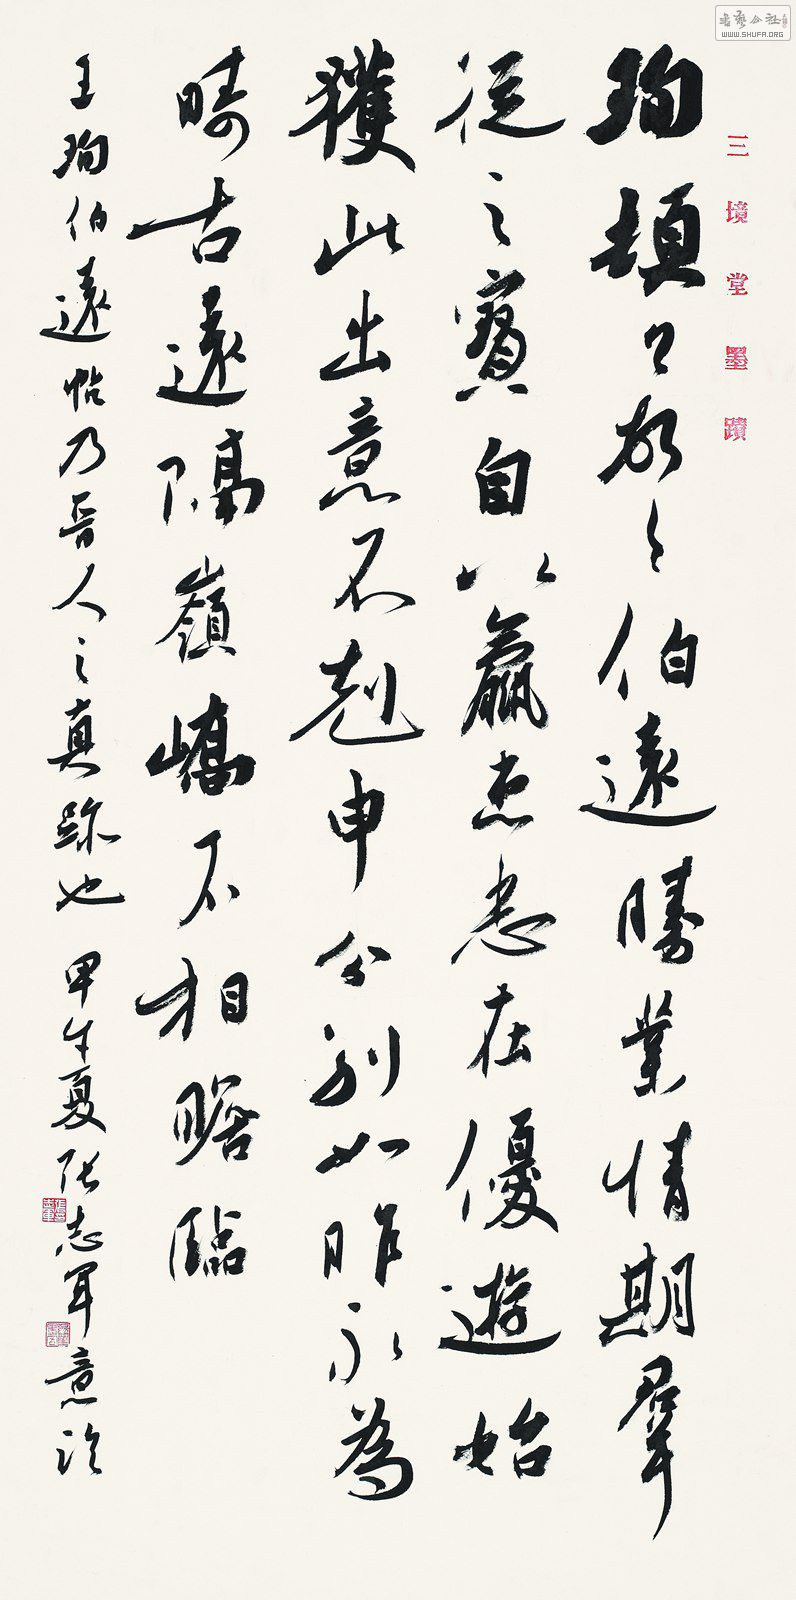 書藝公社
WWW.SHUFA.ORG
三境堂墨蹟
珣頓々首々伯遠勝業情期羣
從之寶自以羸患悉在優遊始
獲此出意不剋申分別如昨永為
疇古遠隔嶺嶠不相瞻臨
王珣伯遠帖乃晉人之真跡也 甲午夏張志軍意臨